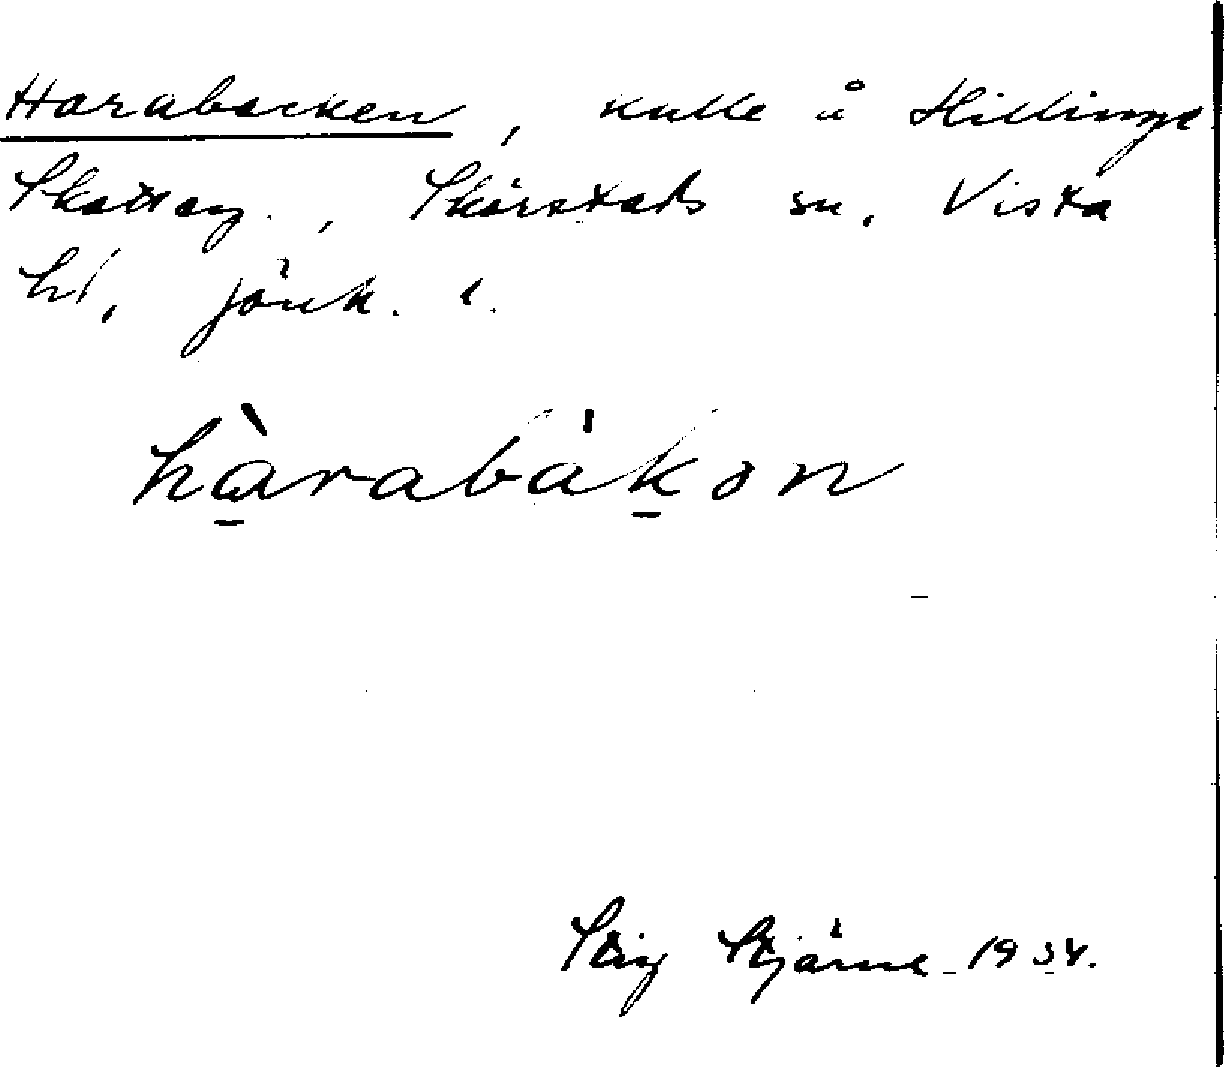 Harabacken, kulle å Hillinge
Skatteg., Skärstads sn. Vista
hd, Jönk. l.
hàrabàkən
Stig Stjärne 1934.